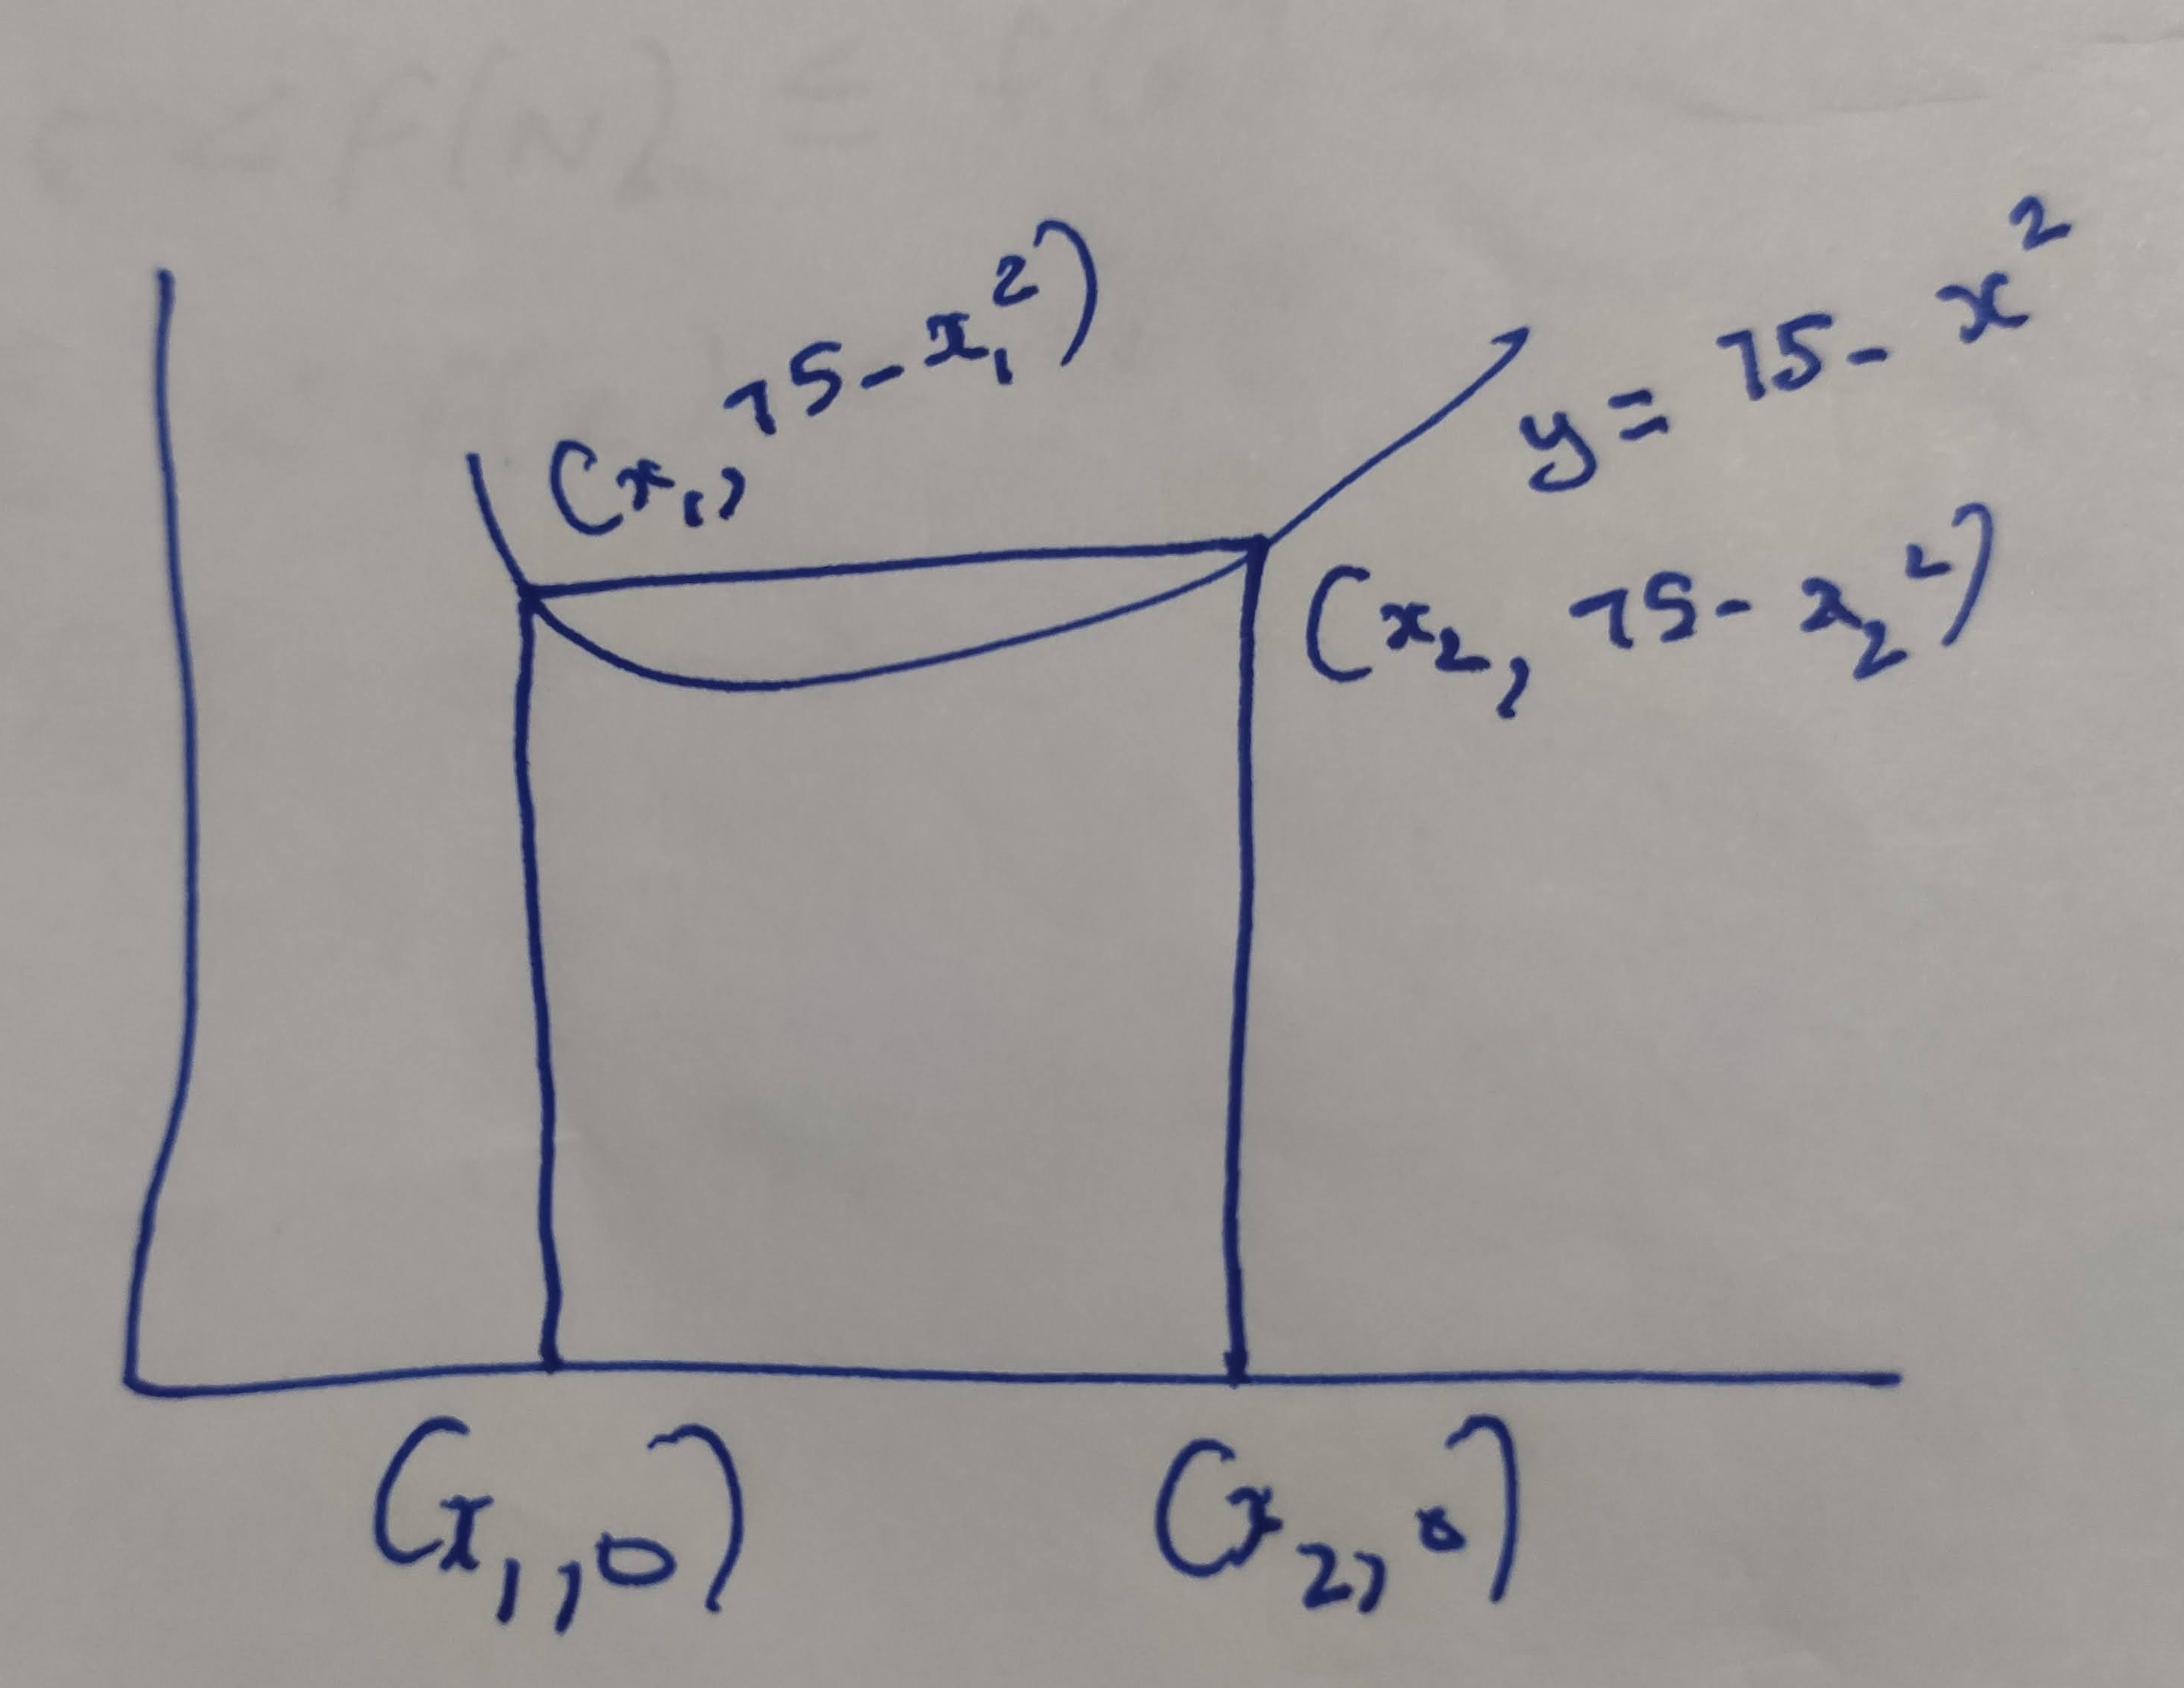 (x₁, 75-x₁²)
y = 75-x²
(x₂, 75-x₂²)
(x₁,0)
(x₂,0)